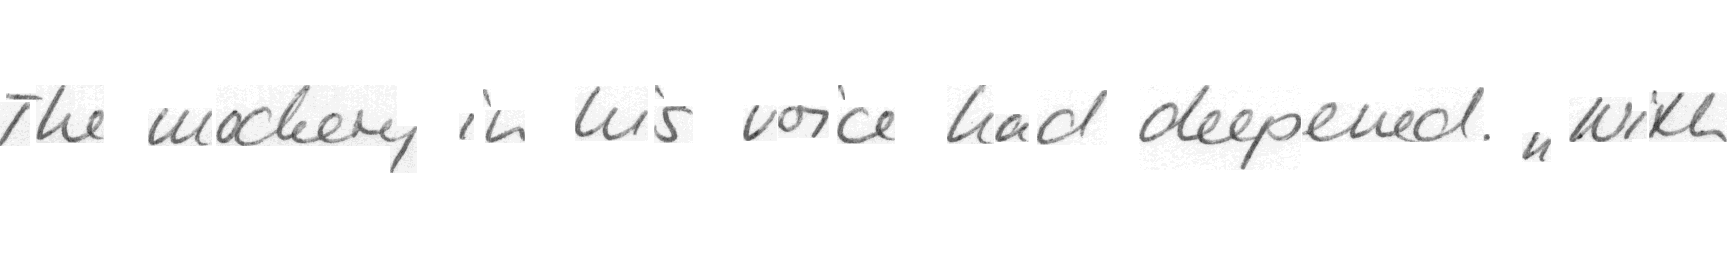 The mockery in his voice had deepened. „With